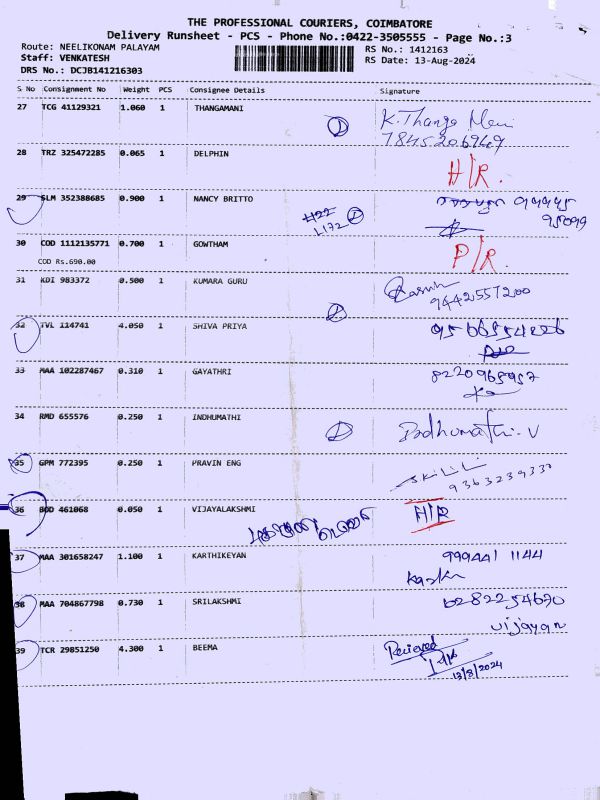 THE PROFESSIONAL COURIERS, COIMBATORE
Delivery Runsheet - PCS - Phone No.:0422-3505555 - Page No.:3
Route: NEELIKONAM PALAYAM
RS No.: 1412163
Staff: VENKATESH
RS Date: 13-Aug-2024
DRS No.: DCJB141216303
S No Consignment No Weight PCS Consignee Details Signature
27 TCG 41129321 1.060 1 THANGAMANI
28 TRZ 325472285 0.065 1 DELPHIN H/R.
29 SLM 352388685 0.900 1 NANCY BRITTO
L172
30 COD 1112135771 0.700 1 GOWTHAM P/R.
COD Rs.690.00
31 KDI 983372 0.500 1 KUMARA GURU
9442557200
32 TVL 114741 4.050 1 SHIVA PRIYA
33 MAA 102287467 0.310 1 GAYATHRI
34 RMD 655576 0.250 1 INDHUMATHI Indhumathi. V
35 GPM 772395 0.250 1 PRAVIN ENG
9363239330
36 BOD 461068 0.050 1 VIJAYALAKSHMI H/R
37 MAA 301658247 1.100 1 KARTHIKEYAN 999441 1144
38 MAA 704867798 0.730 1 SRILAKSHMI
vijayan
39 TCR 29851250 4.300 1 BEEMA Recieved
13/8/2024